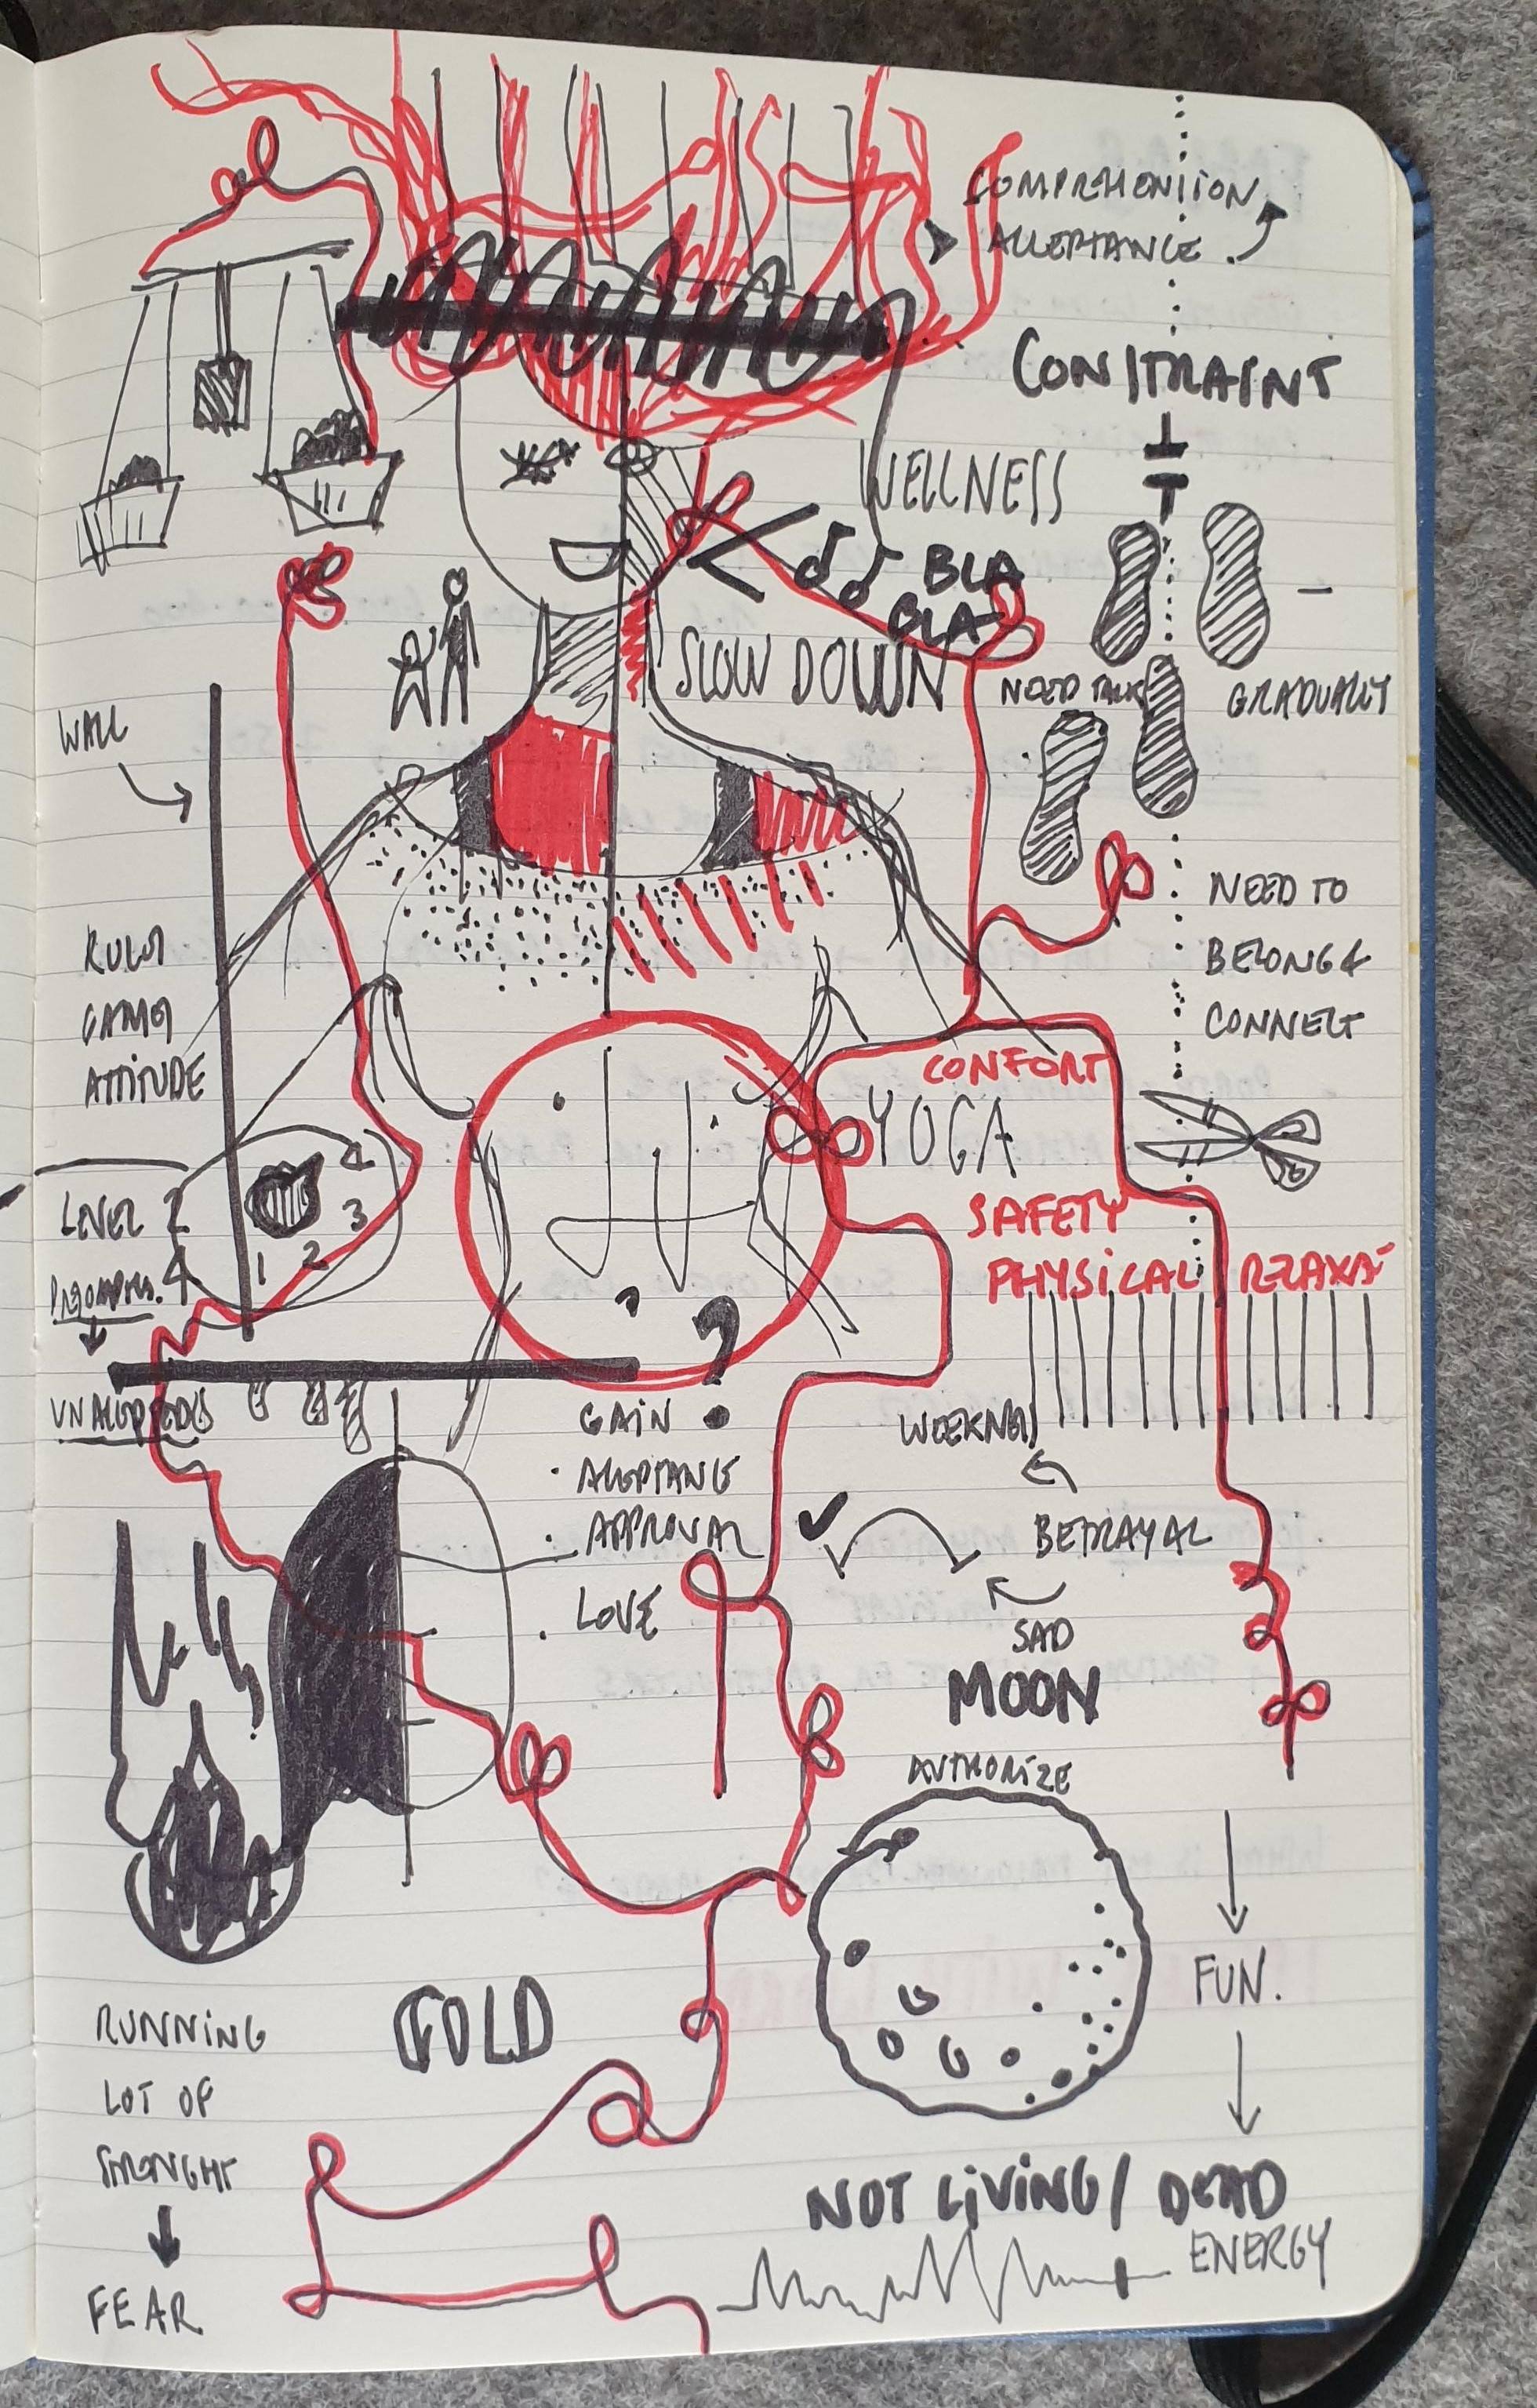 COMPREHENSION
ACCEPTANCE
CONSTRAINT
WELLNESS
BLA
BLA
SLOW DOWN
NEED TALK
GRADUALLY
WALL
NEED TO
BELONG &
CONNECT
RULES
GAMES
ATTITUDE
CONFORT
YOGA
SAFETY
PHYSICAL RELAXA
LEVEL
4
3
2
1
GAIN ?
WEEKNESS
ACCEPTANCE
APPROVAL
BETRAYAL
LOVE
SAD
MOON
AUTHORIZE
FUN.
COLD
RUNNING
LOT OF
FEAR
NOT LIVING / DEAD
ENERGY